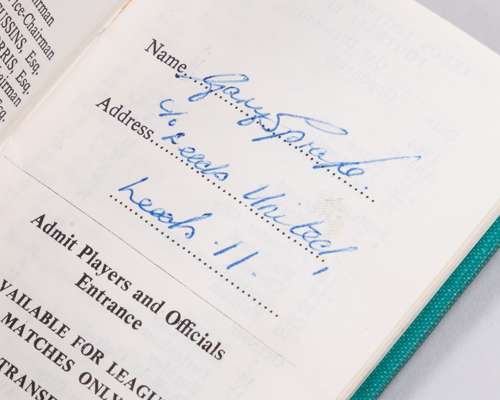 -Chairman
ice-Chairman
USSINS, Esq.
RRIS, Esq.
hairman
rman
Esq.
Esq.
Q.
Name Gary Sprake.
Address c/o Leeds United,
Leeds. 11.
Admit Players and Officials
Entrance
VAILABLE FOR LEAGU
MATCHES ONLY
TRANSFE